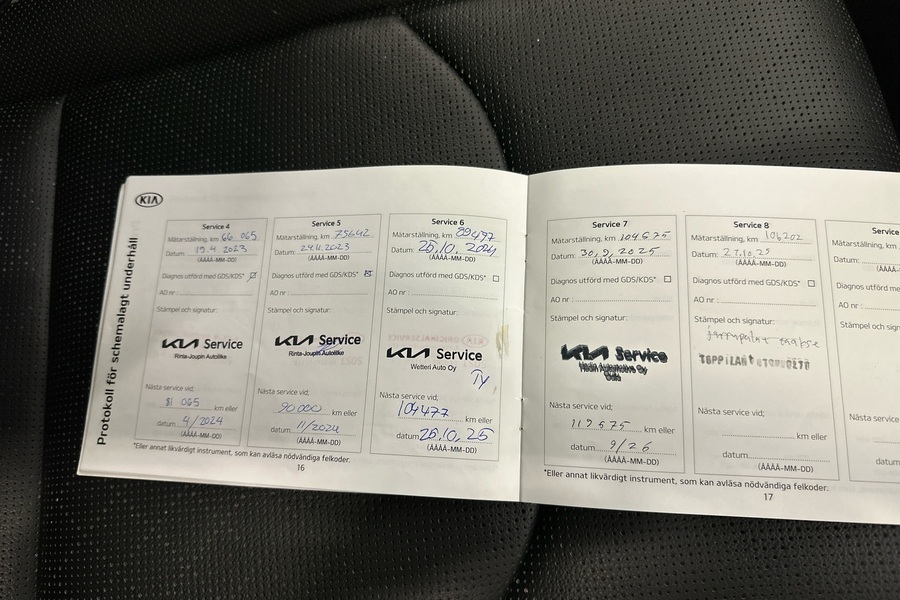 KIA
Protokoll för schemalagt underhåll
Service 4
Mätarställning, km 66 065
Datum: 19.4.2023
(ÅÅÅÅ-MM-DD)
Diagnos utförd med GDS/KDS*
AO nr :
Stämpel och signatur:
KIA Service
Rinta-Joupin Autoliike
Nästa service vid;
81 065 km eller
datum 4/2024
(ÅÅÅÅ-MM-DD)
Service 5
Mätarställning, km 75642
Datum: 24.11.2023
(ÅÅÅÅ-MM-DD)
Diagnos utförd med GDS/KDS*
AO nr :
Stämpel och signatur:
KIA Service
Rinta-Joupin Autoliike
Nästa service vid;
90000 km eller
datum 11/2024
(ÅÅÅÅ-MM-DD)
Service 6
Mätarställning, km 89477
Datum: 25.10.2024
(ÅÅÅÅ-MM-DD)
Diagnos utförd med GDS/KDS*
AO nr :
Stämpel och signatur:
KIA Service
Wetteri Auto Oy
Ty
Nästa service vid;
104477 km eller
datum 25.10.25
(ÅÅÅÅ-MM-DD)
*Eller annat likvärdigt instrument, som kan avläsa nödvändiga felkoder.
16
Service 7
Mätarställning, km 104675
Datum: 30.9.2025
(ÅÅÅÅ-MM-DD)
Diagnos utförd med GDS/KDS*
AO nr :
Stämpel och signatur:
KIA Service
Nästa service vid;
119675 km eller
datum 9/26
(ÅÅÅÅ-MM-DD)
Service 8
Mätarställning, km 106202
Datum: 27.10.25
(ÅÅÅÅ-MM-DD)
Diagnos utförd med GDS/KDS*
AO nr :
Stämpel och signatur:
Nästa service vid;
km eller
datum
(ÅÅÅÅ-MM-DD)
*Eller annat likvärdigt instrument, som kan avläsa nödvändiga felkoder.
17
Service
Mätarställning, km
Datum:
Diagnos utförd med
AO nr :
Stämpel och signatur:
Nästa service
datum